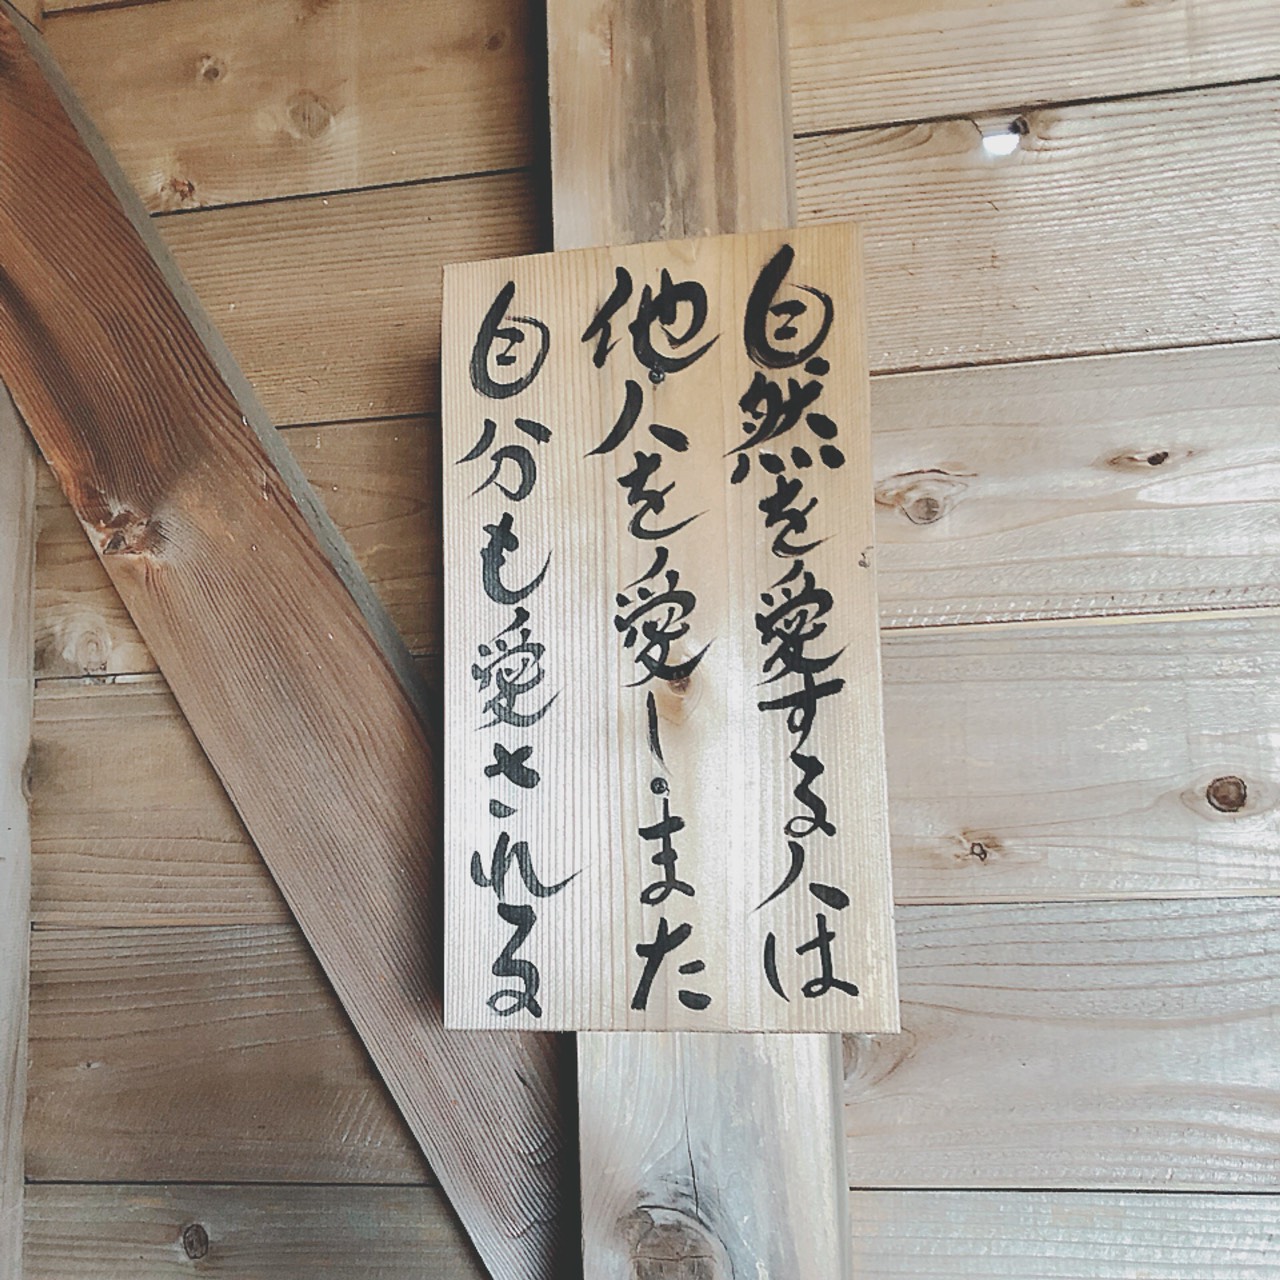 自然を愛する人は
他人を愛しまた
自分も愛される